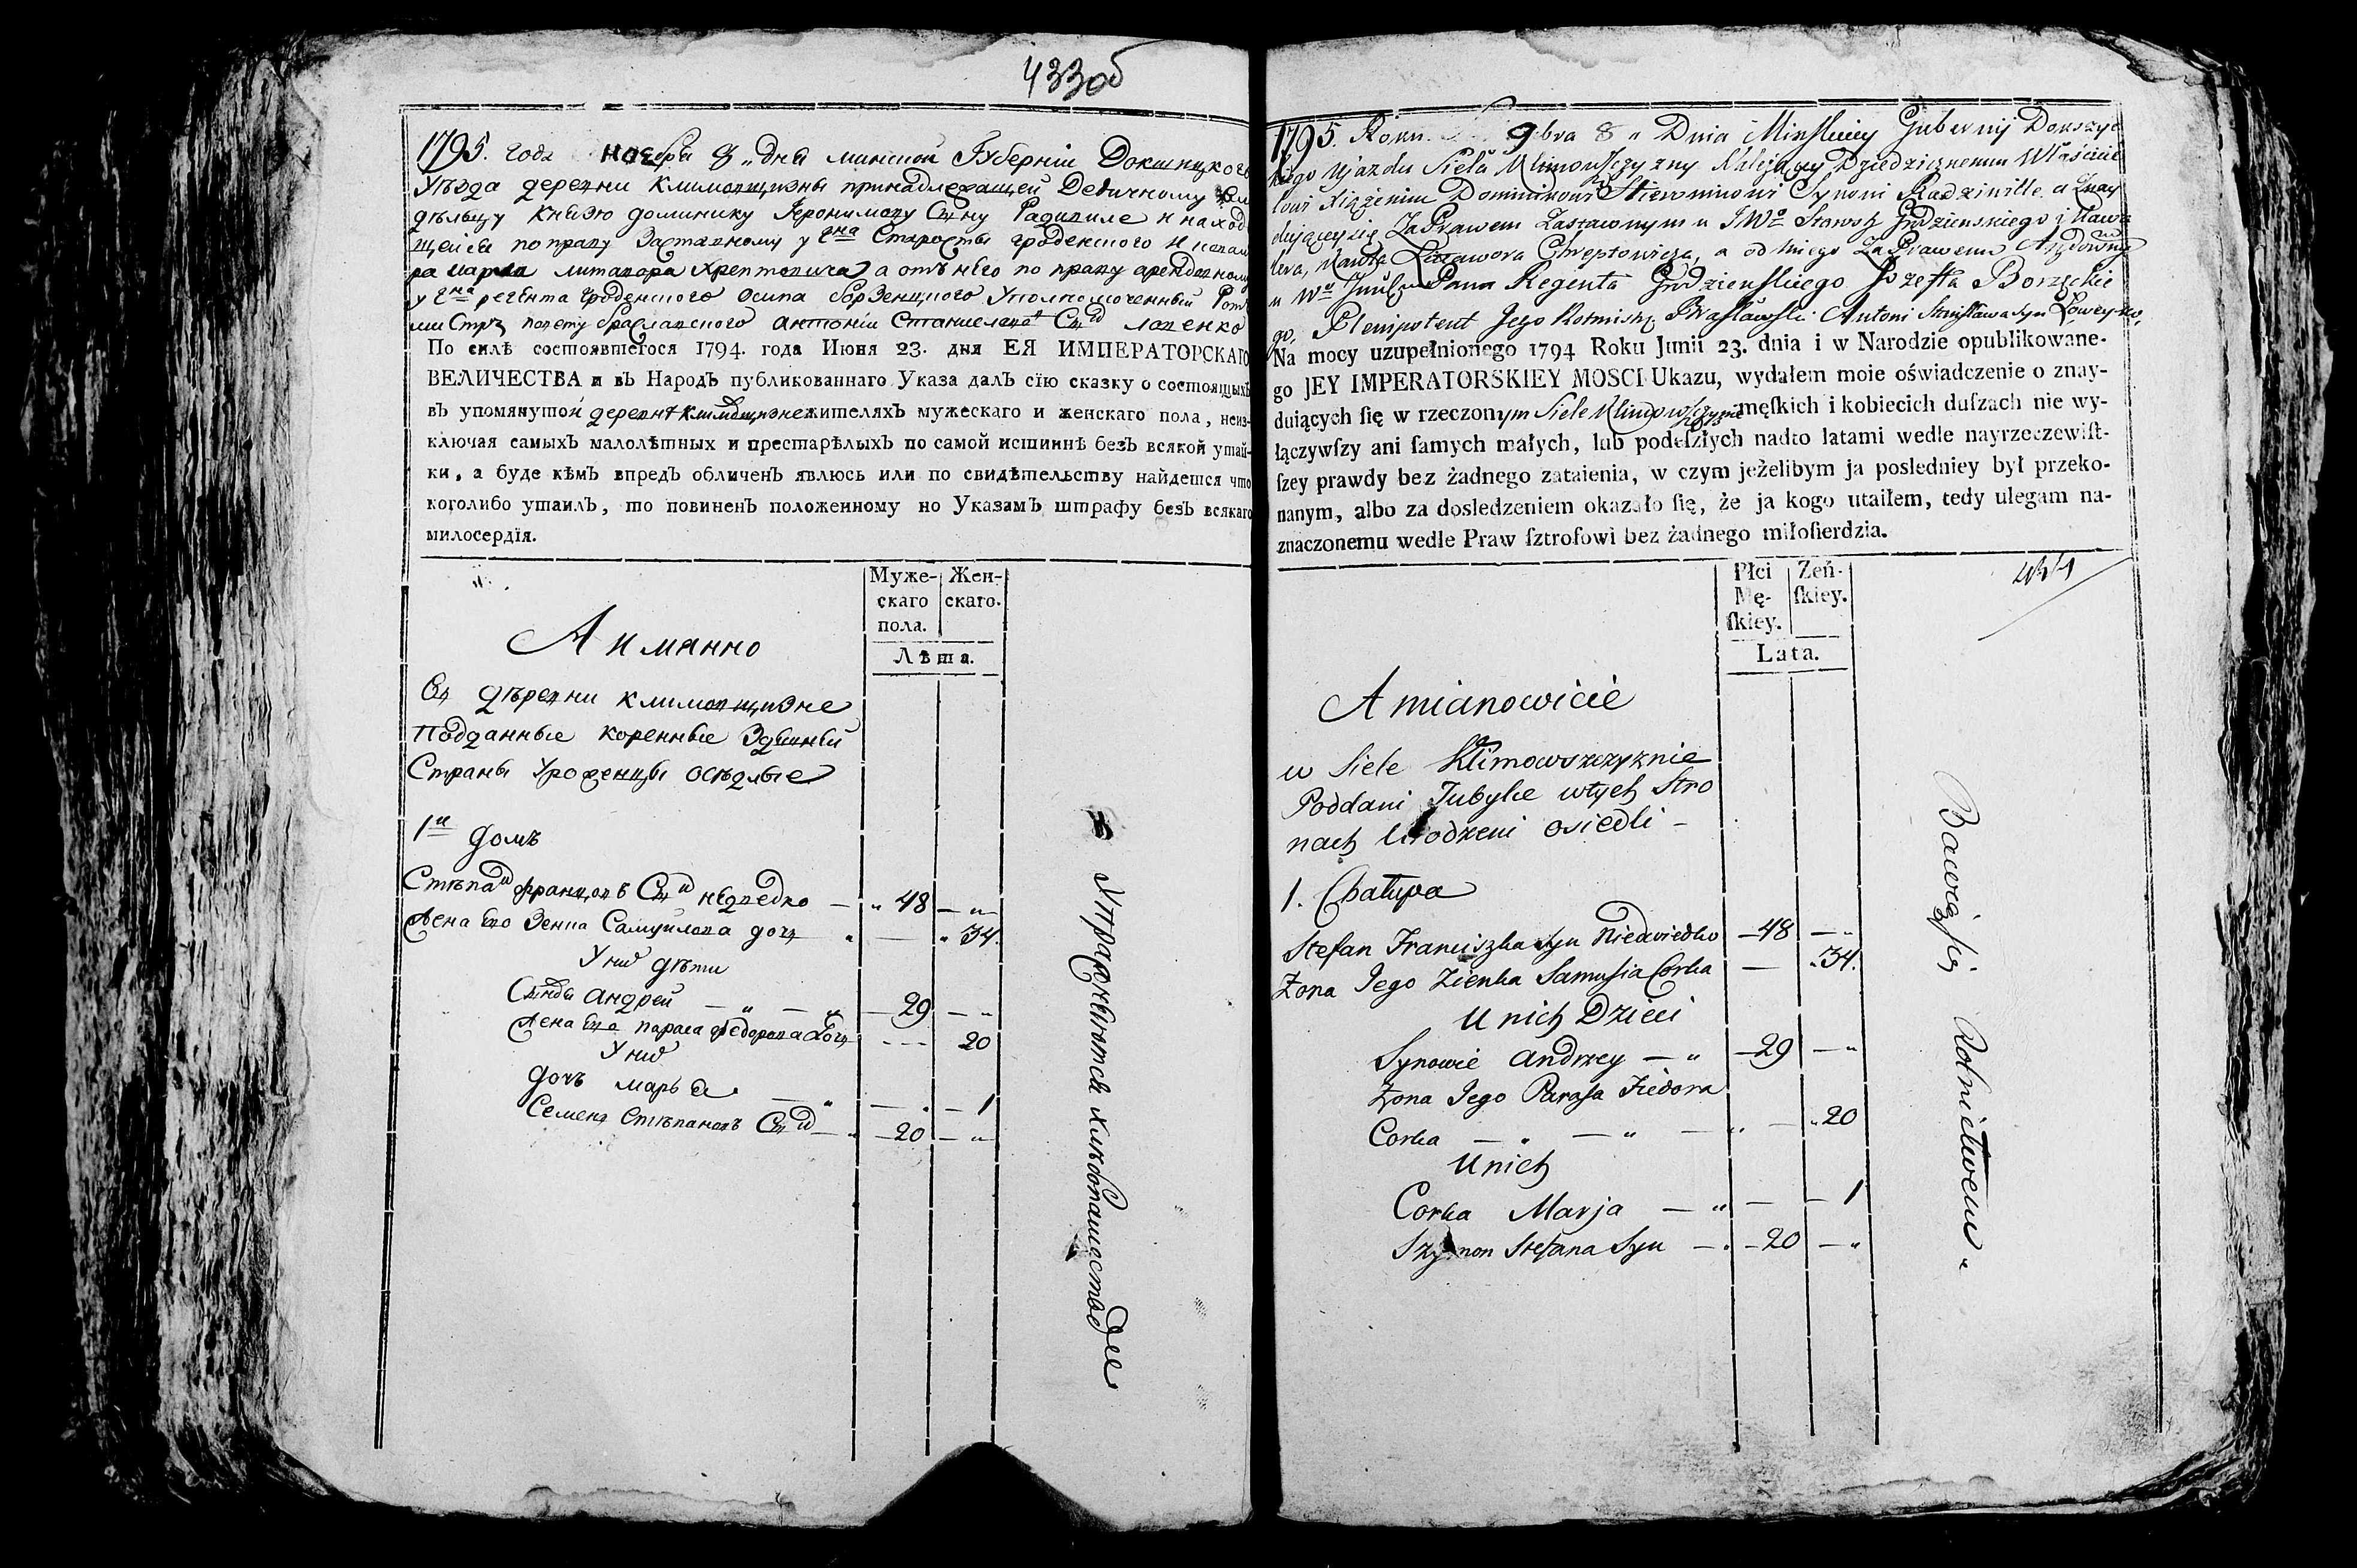 433об
1795. года ноебря 8 „ дня минской Губерніи Докшицкого
Уѣзда деревни Климовщизны принадлежащей Дедичному
дѣльцу Князю доминику Іеронимову Сыну Радивиле и наход
щейся по праву Заставному у Гна Старосты гроденского и
литавора Хрептовича, а отъ него по праву арендовному
у Гна регента гроденского Осипа борженцкого Уполномоченный Рот
мистръ повету браславского антоніи Станиславовъ Сын
По силѣ состоявшегося 1794. года Июня 23. дня ЕЯ ИМПЕРАТОРСКАГО
ВЕЛИЧЕСТВА и въ Народъ публикованнаго Указа далъ сїю сказку о состоящыхъ
въ упомянутой деревнѣ Климовщизне жителяхъ мужескаго и женскаго пола, неиз-
ключая самыхъ малолѣтныхъ и престарѣлыхъ по самой истиннѣ безъ всякой утай-
ки, а буде кѣмъ впредь обличенъ явлюсь или по свидѣтельству найдется что
коголибо утаилъ, то повиненъ положенному по Указамъ штрафу безъ всякаго
милосердїя.
Муже-
скаго
пола.
Жен-
скаго.
Лѣта.
А имянно
Въ дѣревни климовщизне
Подданные коренные Здешней
Страны Уроженцы осѣдлые
1й домъ
Стѣпан францовъ Сын недведко — „ 48 — „
Жена Его Зенка Самуйлова дочь „ — „ 34.
У них дѣти
Сыновья андрей — „ — „ — 29 — „
Жена Его параса федорова дочь - - - 20
У них
дочь марья — „ — „ — 1
Семенъ Стѣпановъ Сын — „ — 20 — „
Упражняются хлебопашеством
1795. Roku 9bra 8 „ Dnia Minskiey Gubernij Dokszyc
kiego Ujazdu Siela Klimowszczyzny Należący Dziedzicznemu Właścicie
lowi Xiążeniu Dominikowi Hieronimowi Synowi Radziwille a Znay
dującey się Za Prawem Zastawnym u JWo Starosty Grodzienskiego i Kawa
lera, Litawora Chreptowicza, a od niego Za Prawem Arędownym
u Wo Pana Regenta Grodzienskiego Jozeffa Borzęckie
go, Plenipotent Jego Rotmistrz Brasławski Antoni Stanisława Syn Łoweyko,
Na mocy uzupełnionego 1794 Roku Junii 23. dnia i w Narodzie opublikowane-
go JEY IMPERATORSKIEY MOSCI Ukazu, wydałem moie oświadczenie o znay-
duiących ſię w rzeczonym Siele Klimowszczyznie męſkich i kobiecich duſzach nie wy-
łączywſzy ani ſamych małych, lub podeſzłych nadto latami wedle nayrzeczewiſt-
ſzey prawdy bez żadnego zataienia, w czym jeżelibym ja posledniey był przeko-
nanym, albo za dosledzeniem okazało ſię, że ja kogo utaiłem, tedy ulegam na-
znaczonemu wedle Praw ſztrofowi bez żadnego miłoſierdzia.
Płci
Mę-
ſkiey.
Zeń-
ſkiey.
Lata.
A mianowicie
w Siele Klimowszczyznie
Poddani Tubylce w tych Stro
nach Urodzeni osiedli —
1. Chałupa
Stefan Franciszka Syn Niedwiedko — 48 — „
Zona Jego Zienka Samusia Corka — „ 34.
U nich Dzieci
Synowie Andrzey — „ — 29 — „
Zona Jego Parasa Fiedora
Corka — „ — „ — „ — „ 20
U nich
Corka Marja — „ — — 1
Szymon Stefana Syn — „ — 20 — „
Bawią się Rolnictwem „